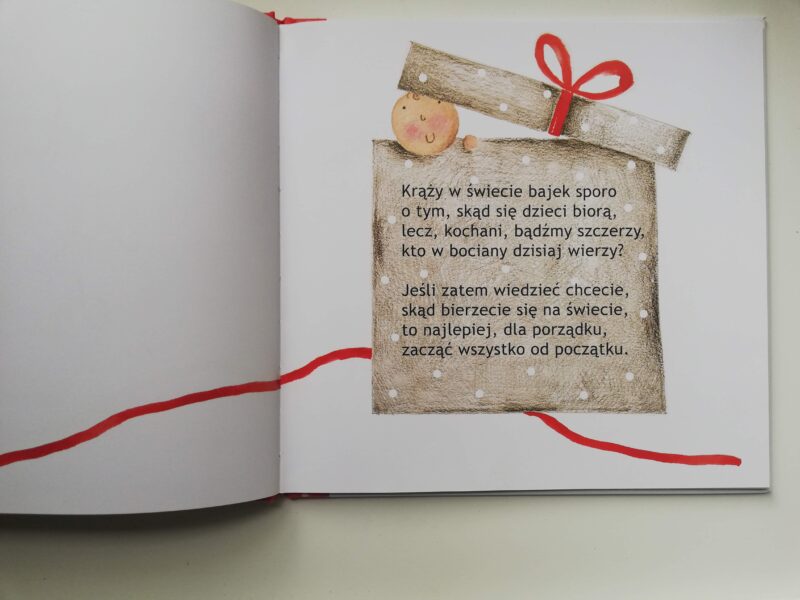 Krąży w świecie bajek sporo
o tym, skąd się dzieci biorą,
lecz, kochani, bądźmy szczerzy,
kto w bociany dzisiaj wierzy?
Jeśli zatem wiedzieć chcecie,
skąd bierzecie się na świecie,
to najlepiej, dla porządku,
zacząć wszystko od początku.